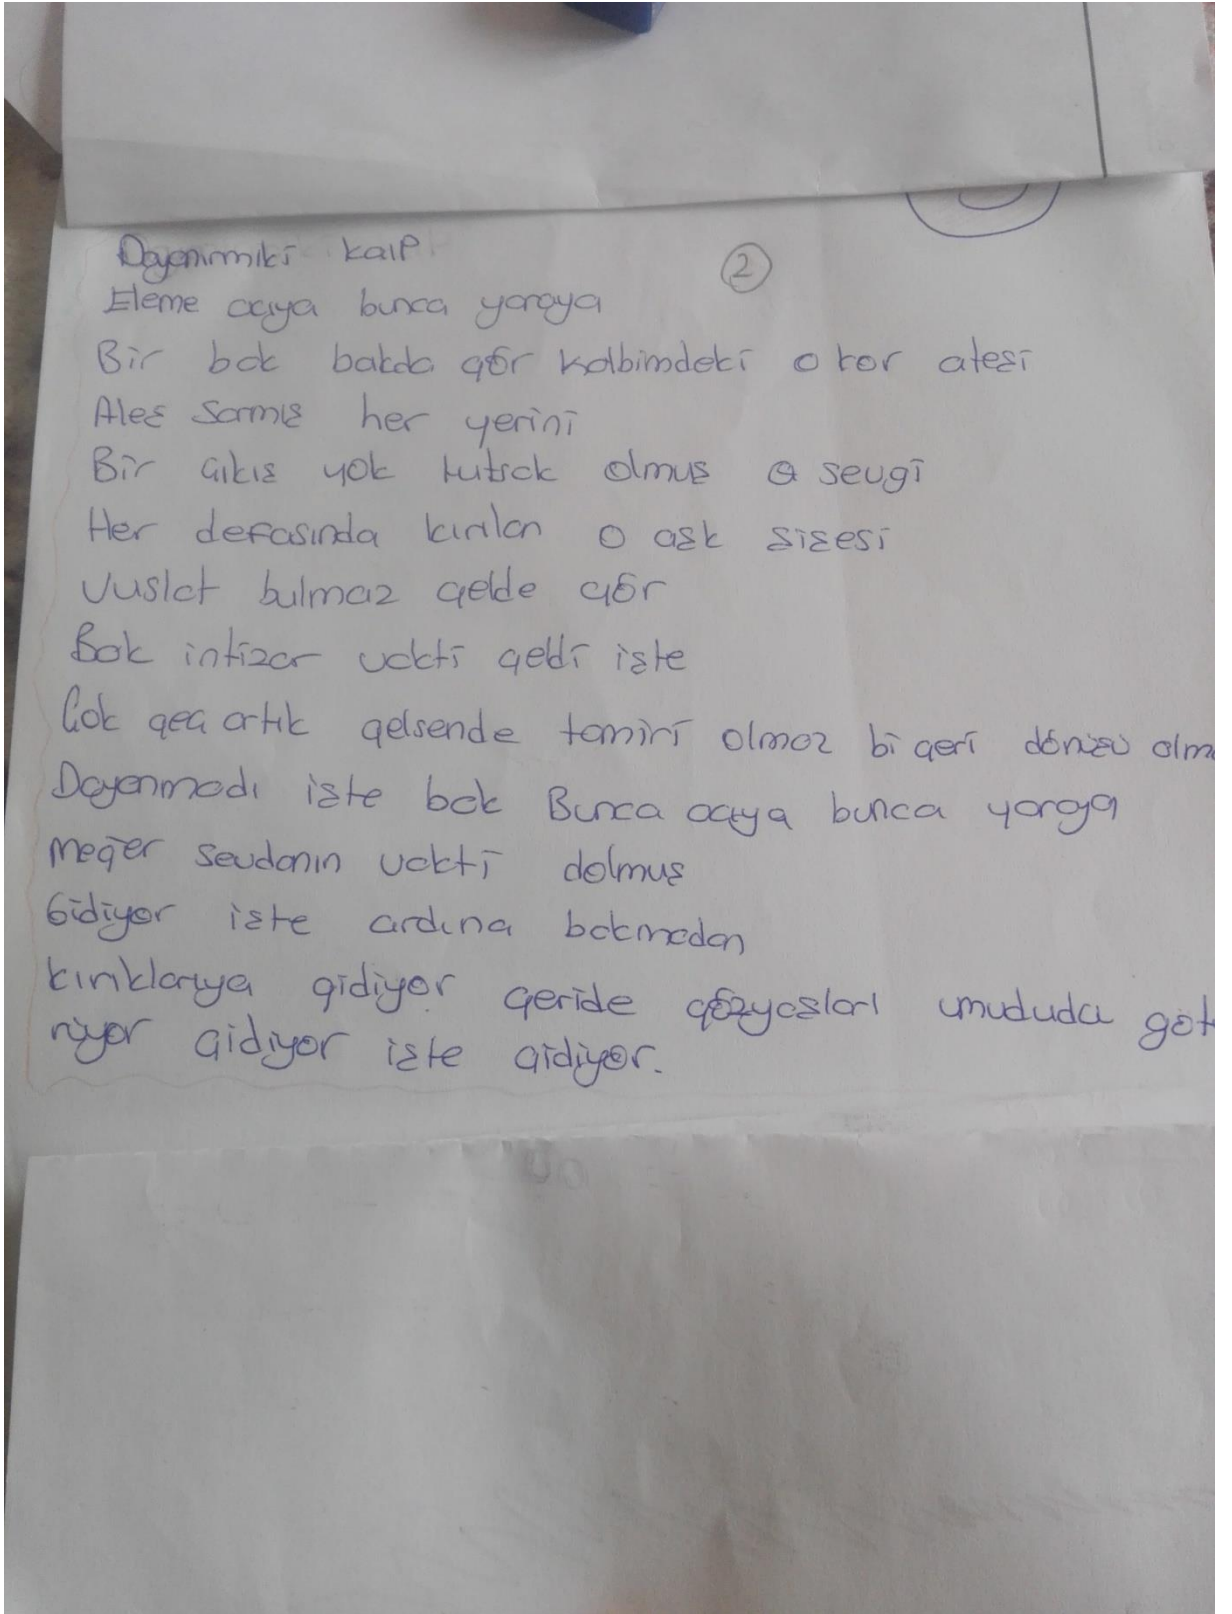 Dayanırmiki kalp
②
Eleme acıya bunca yaraya
Bir bak bakda gör kalbimdeki o kor ateşi
Aleş Sarmış her yerini
Bir çıkış yok tutsak olmuş o sevgi
Her defasında kırılan o aşk şişesi
Vuslat bulmaz gelde gör
Bak intizar vakti geldi işte
Çok geç artık gelsende tamiri olmaz bi geri dönüşü olma
Dayanmadı işte bak Bunca acıya bunca yaraya
meğer sevdanın vakti dolmuş
Gidiyor işte ardına bakmadan
kırıklarıya gidiyor geride gözyaşları umududa göt
rüyor gidiyor işte gidiyor.